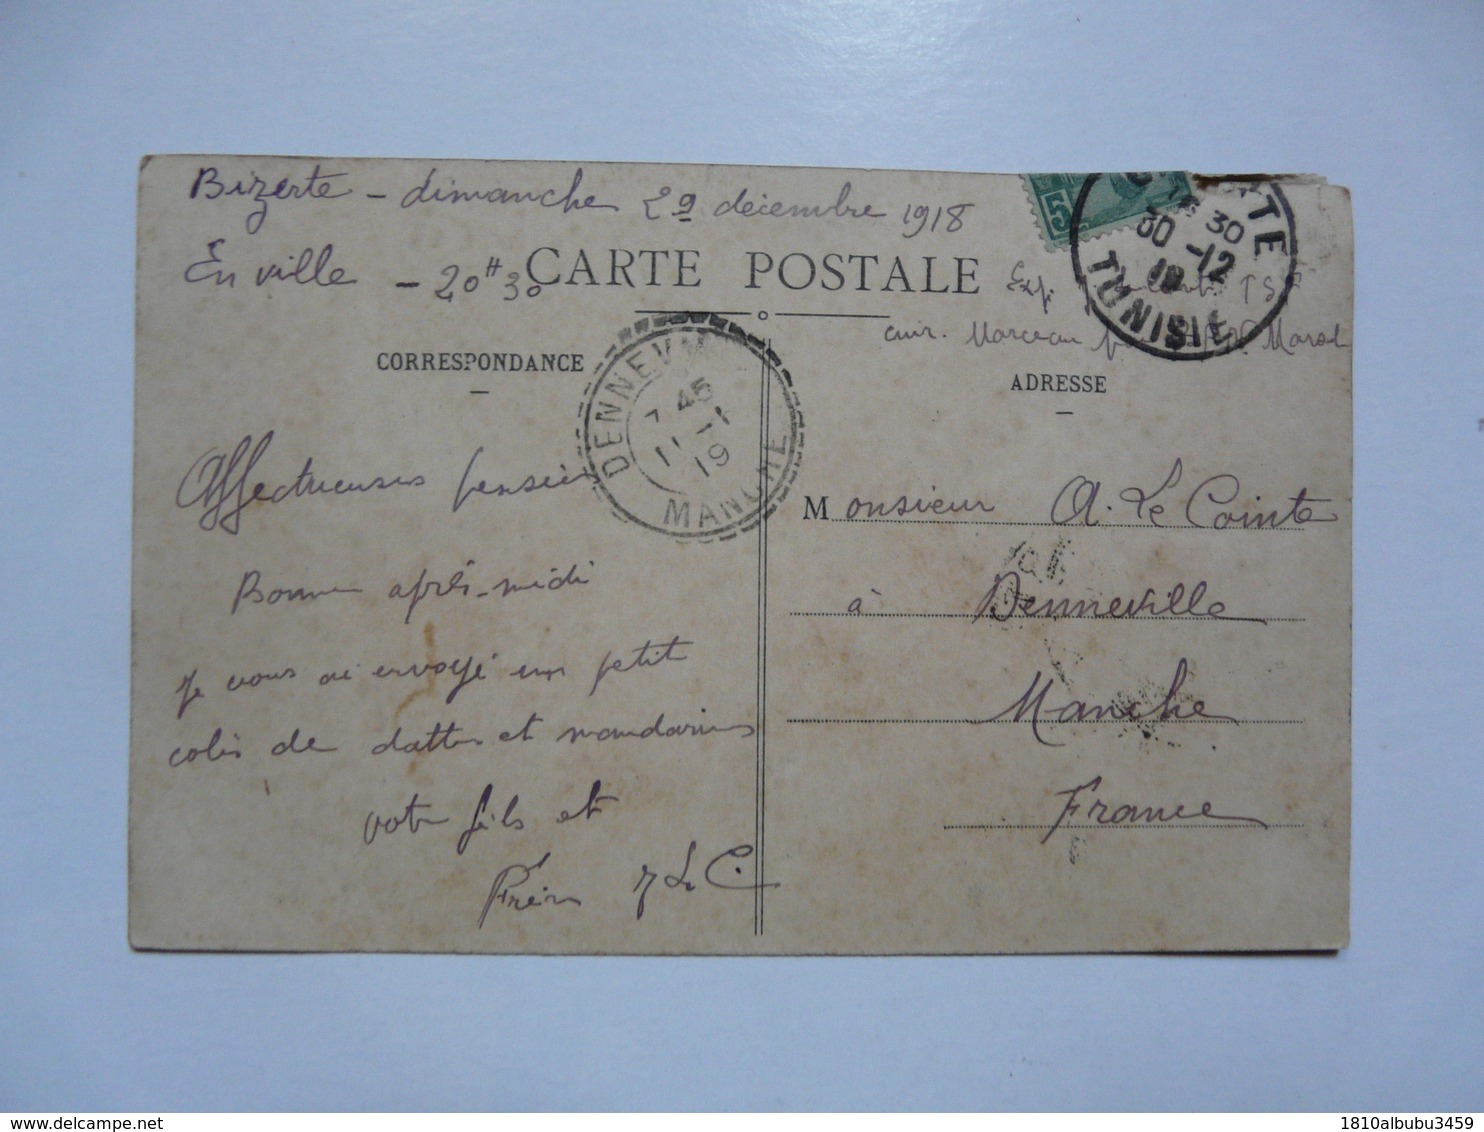 Bizerte - dimanche 29 décembre 1918
En ville - 20H30
CARTE POSTALE
Exp. TSF
cuir. Marceau
CORRESPONDANCE
ADRESSE
5
TUNISIE
30 -12
18
30
DENNEVILLE
MANCHE
7 45
11 - 1
19
Affectueuses pensées
Bonne après-midi
Je vous ai envoyé un petit
colis de dattes et mandarines
votre fils et
Frère LeC.
Monsieur A. Le Cointe
à Denneville
Manche
France
delcampe.net
1810albubu3459